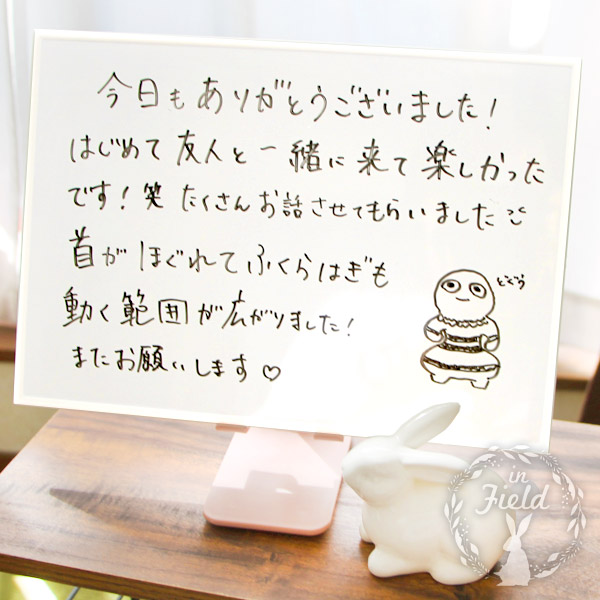 今日もありがとうございました!
はじめて友人と一緒に来て楽しかった
です!笑 たくさんお話させてもらいました
首がほぐれてふくらはぎも
動く範囲が広がりました!
またお願いします♡
どぐう
in
Field